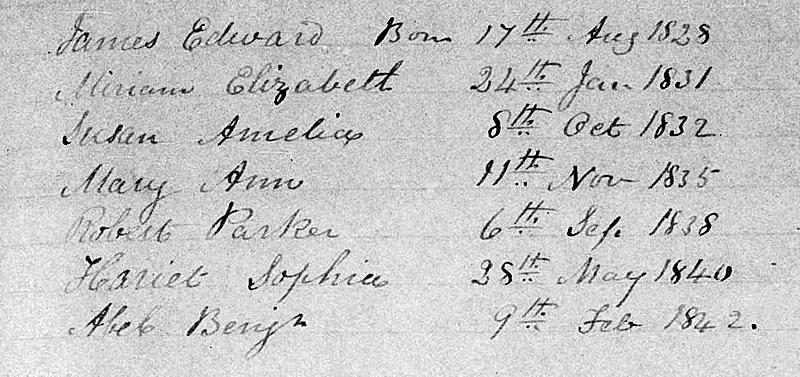 James Edward Born 17th Aug 1828
Miriam Elizabeth 24th Jan 1831
Susan Amelia 8th Oct 1832
Mary Ann 11th Nov 1835
Robert Parker 6th Sep. 1838
Hariet Sophia 28th May 1840
9th Feb 1842.